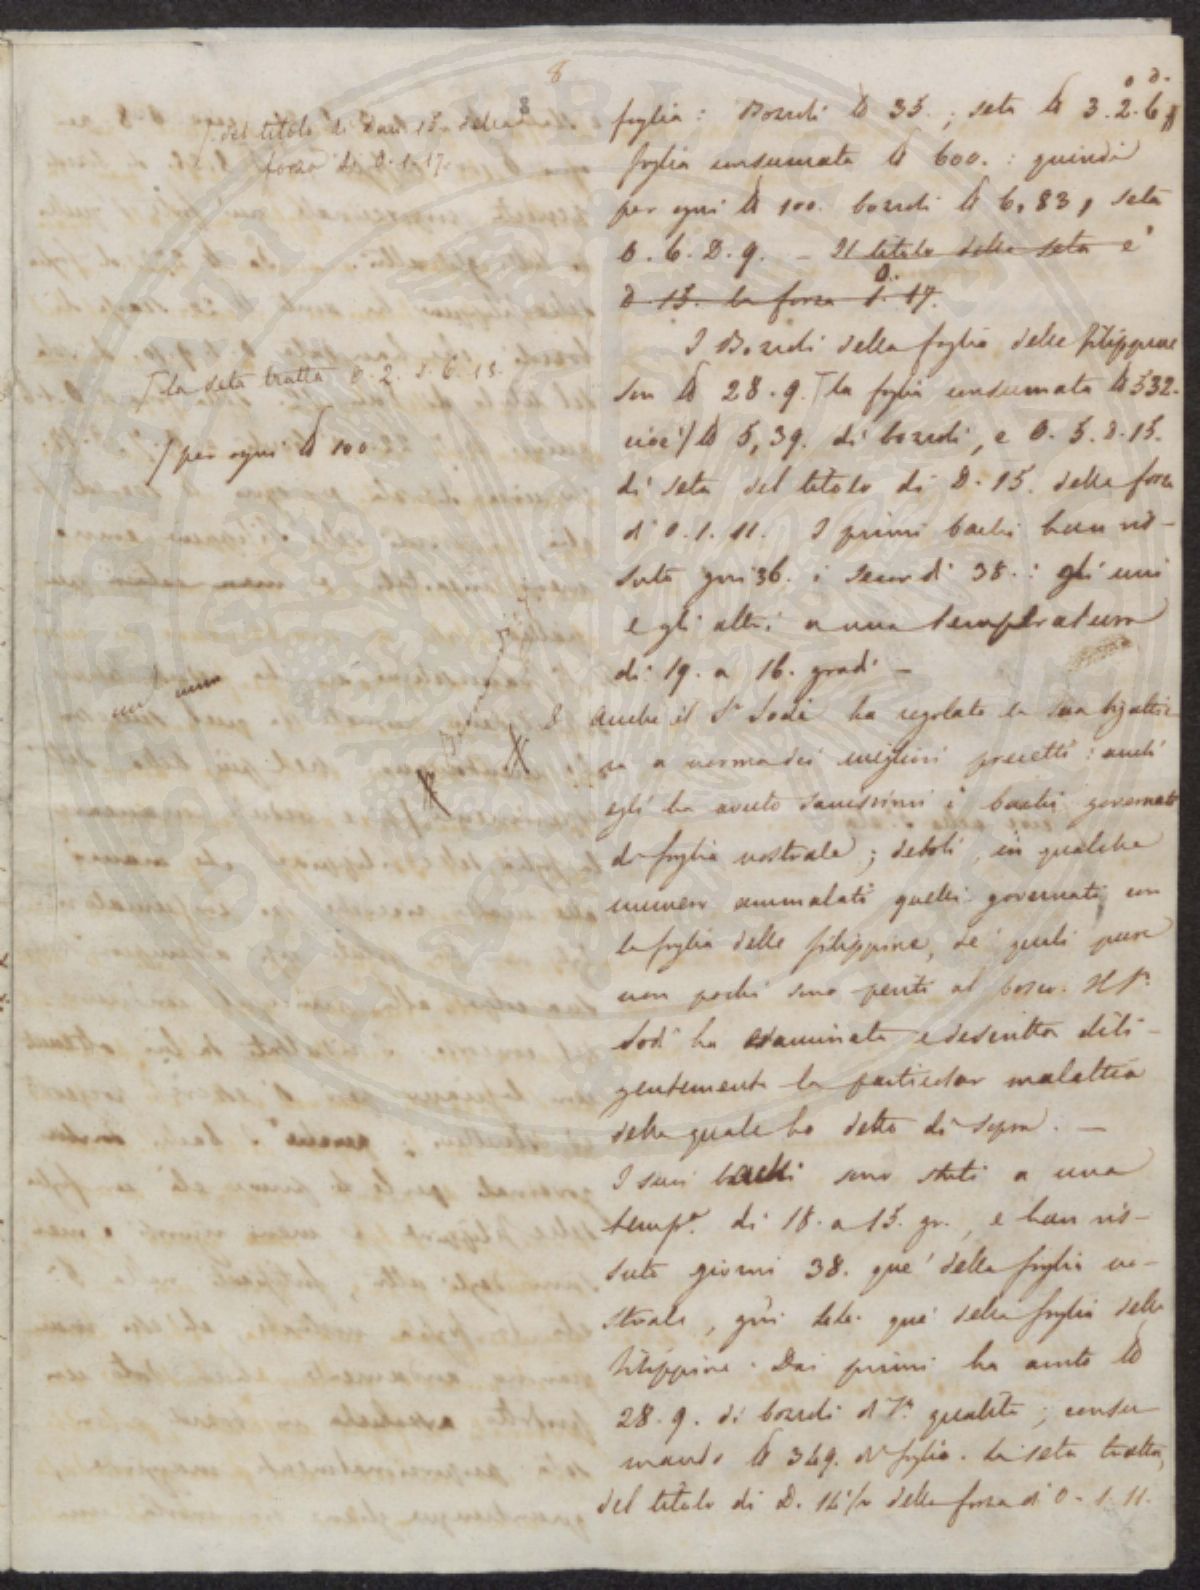 8
8
/ del titolo di Dan. 15. della
forza di O. 1. 17.
foglia: Bozzoli ℔ 35.; seta ℔ 3. 2. 6
foglia consumata ℔ 600.: quindi
per ogni ℔ 100. bozzoli ℔ 6,83, seta
O. 6. D. 9. - Il titolo della seta è
D. 15. la forza 1. 17.
I Bozzoli della foglia delle filippine
son ℔ 28. 9. / la foglia consumata ℔ 532.
/ la seta tratta O. 2. 6. 18.
cioè / ℔ 5,39. di bozzoli, e O. 5. D. 15.
/ per ogni ℔ 100
di seta del titolo di D. 15. della forza
di O. 1. 11. I primi bachi han vis-
suto gni 36. i secondi 38.: gli uni
e gli altri a una temperatura
di 19. a 16. gradi -
anche il Sr. Sodi ha regolato la sua bigattie
ra a norma dei migliori precetti: anch'
egli ha avuto sanissimi i bachi governati
di foglia nostrale; deboli, in qualche
numero ammalati quelli governati con
la foglia delle filippine, de' quali pure
non pochi sono periti al bosco. Il Sr.
Sodi ha esaminata e descritta dili-
gentemente la particolar malattia
della quale ho detto di sopra. -
I suoi bachi sono stati a una
tempa. di 18. a 15. gr., e han vis-
suto giorni 38. que' della foglia no-
strale, que' della foglia delle
filippine. Dai primi ha avuto ℔
28. 9. di bozzoli di 1a. qualità; consu-
mando ℔ 349. di foglia. La seta tratta,
del titolo di D. 14 1/2 della forza di O. 1. 11.